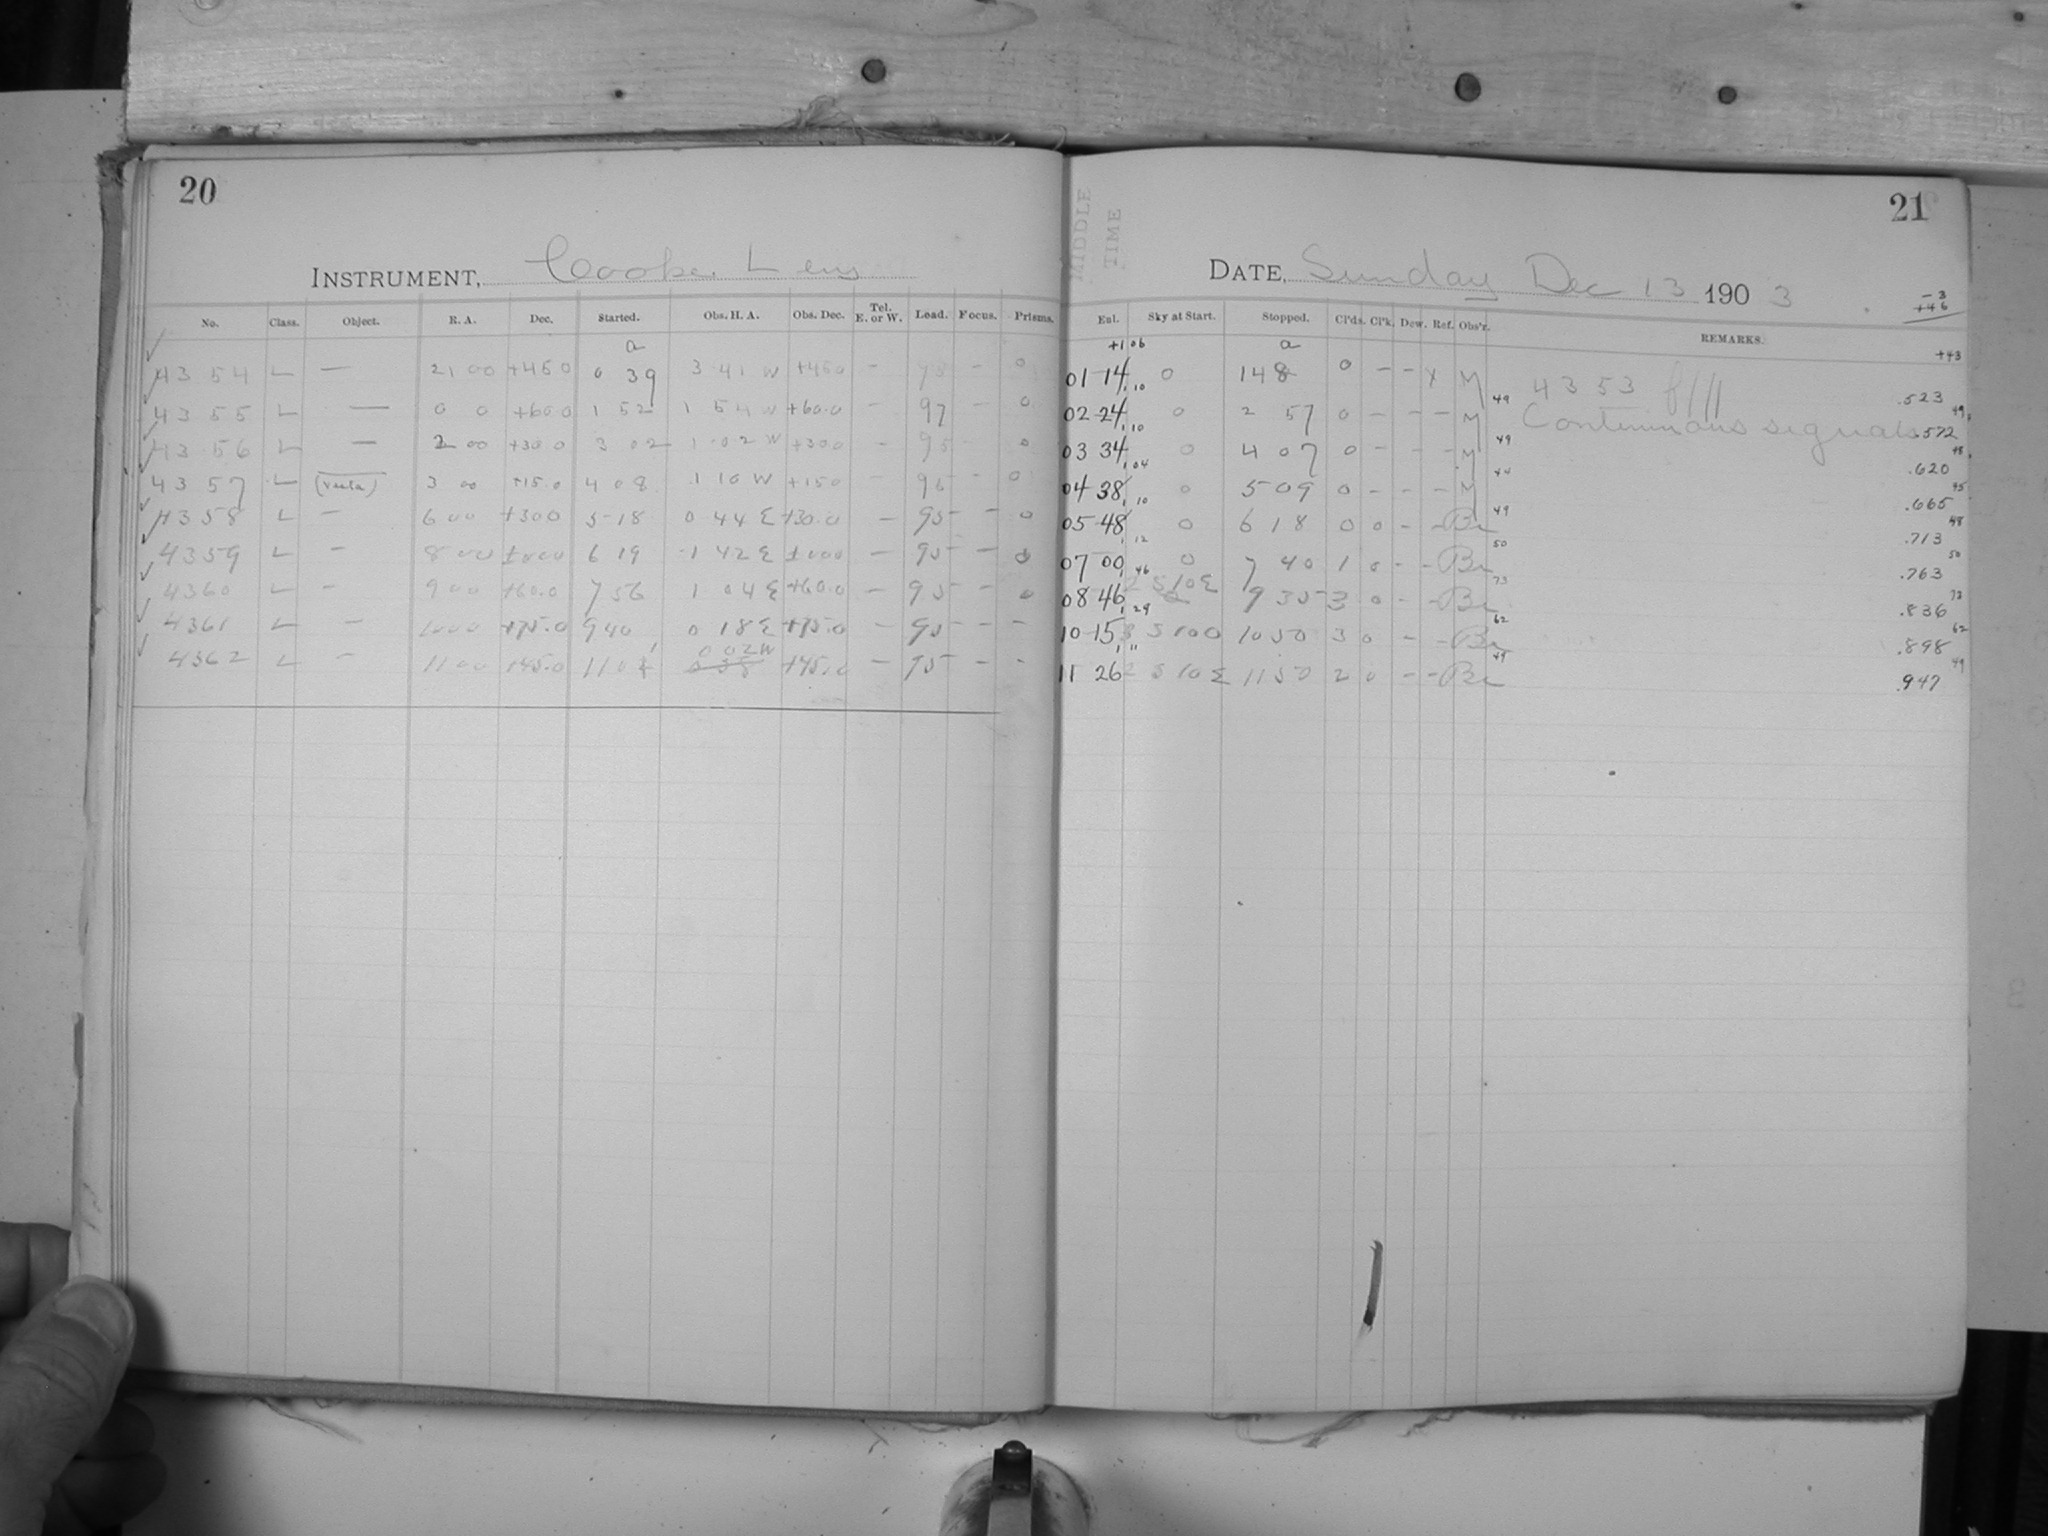 20
INSTRUMENT, Cooke Lens
No. Class. Object. R. A. Dec. Started. Obs. H. A. Obs. Dec. Tel. E. or W. Load. Focus. Prisms.
a
4354 L — 21 00 +45 0 0 39 3 41 W +45 0 — 98 — 0
4355 L — 0 0 +60.0 1 52 1 54 W +60.0 — 97 — 0
4356 L — 2 00 +30 0 3 02 1 02 W +30 0 — 95 — 0
4357 L (Vesta) 3 00 +15.0 4 08 1 10 W +15 0 — 96 — 0
4358 L — 6 00 +30 0 5 18 0 44 E +30.0 — 95 — 0
4359 L — 8 00 +00 0 6 19 1 42 E +00 0 — 95 — 0
4360 L — 9 00 +60.0 7 56 1 04 E +60.0 — 95 — 0
4361 L — 10 00 +75.0 9 40 0 18 E +75.0 — 95 — —
0 02 W
4362 L — 11 00 +45.0 11 04 +45.0 — 95 — —
21
MIDDLE
TIME
DATE, Sunday Dec 13 1903
-3
+46
Exl. Sky at Start. Stopped. Cl'ds. Cl'k. Dew. Ref. Obs'r. REMARKS.
+1 06 a +43
01 14 0 1 48 0 — — M 4353 .523
10 49 49
02 24 0 2 57 0 — — — M Continuous signals .572
10 49 48
03 34 0 4 07 0 — — — M .620
04 44 45
04 38 0 5 09 0 — — — M .665
10 49 48
05 48 0 6 18 0 0 — — Br .713
12 50 50
07 00 0 7 40 1 0 — — Br .763
46 73 73
08 46 2 S 10 E 9 35 3 0 — — Br .836
29 62 62
10 15 3 S 10 0 10 50 3 0 — — Br .898
11 49 49
11 26 2 S 10 E 11 50 2 0 — — Br .947